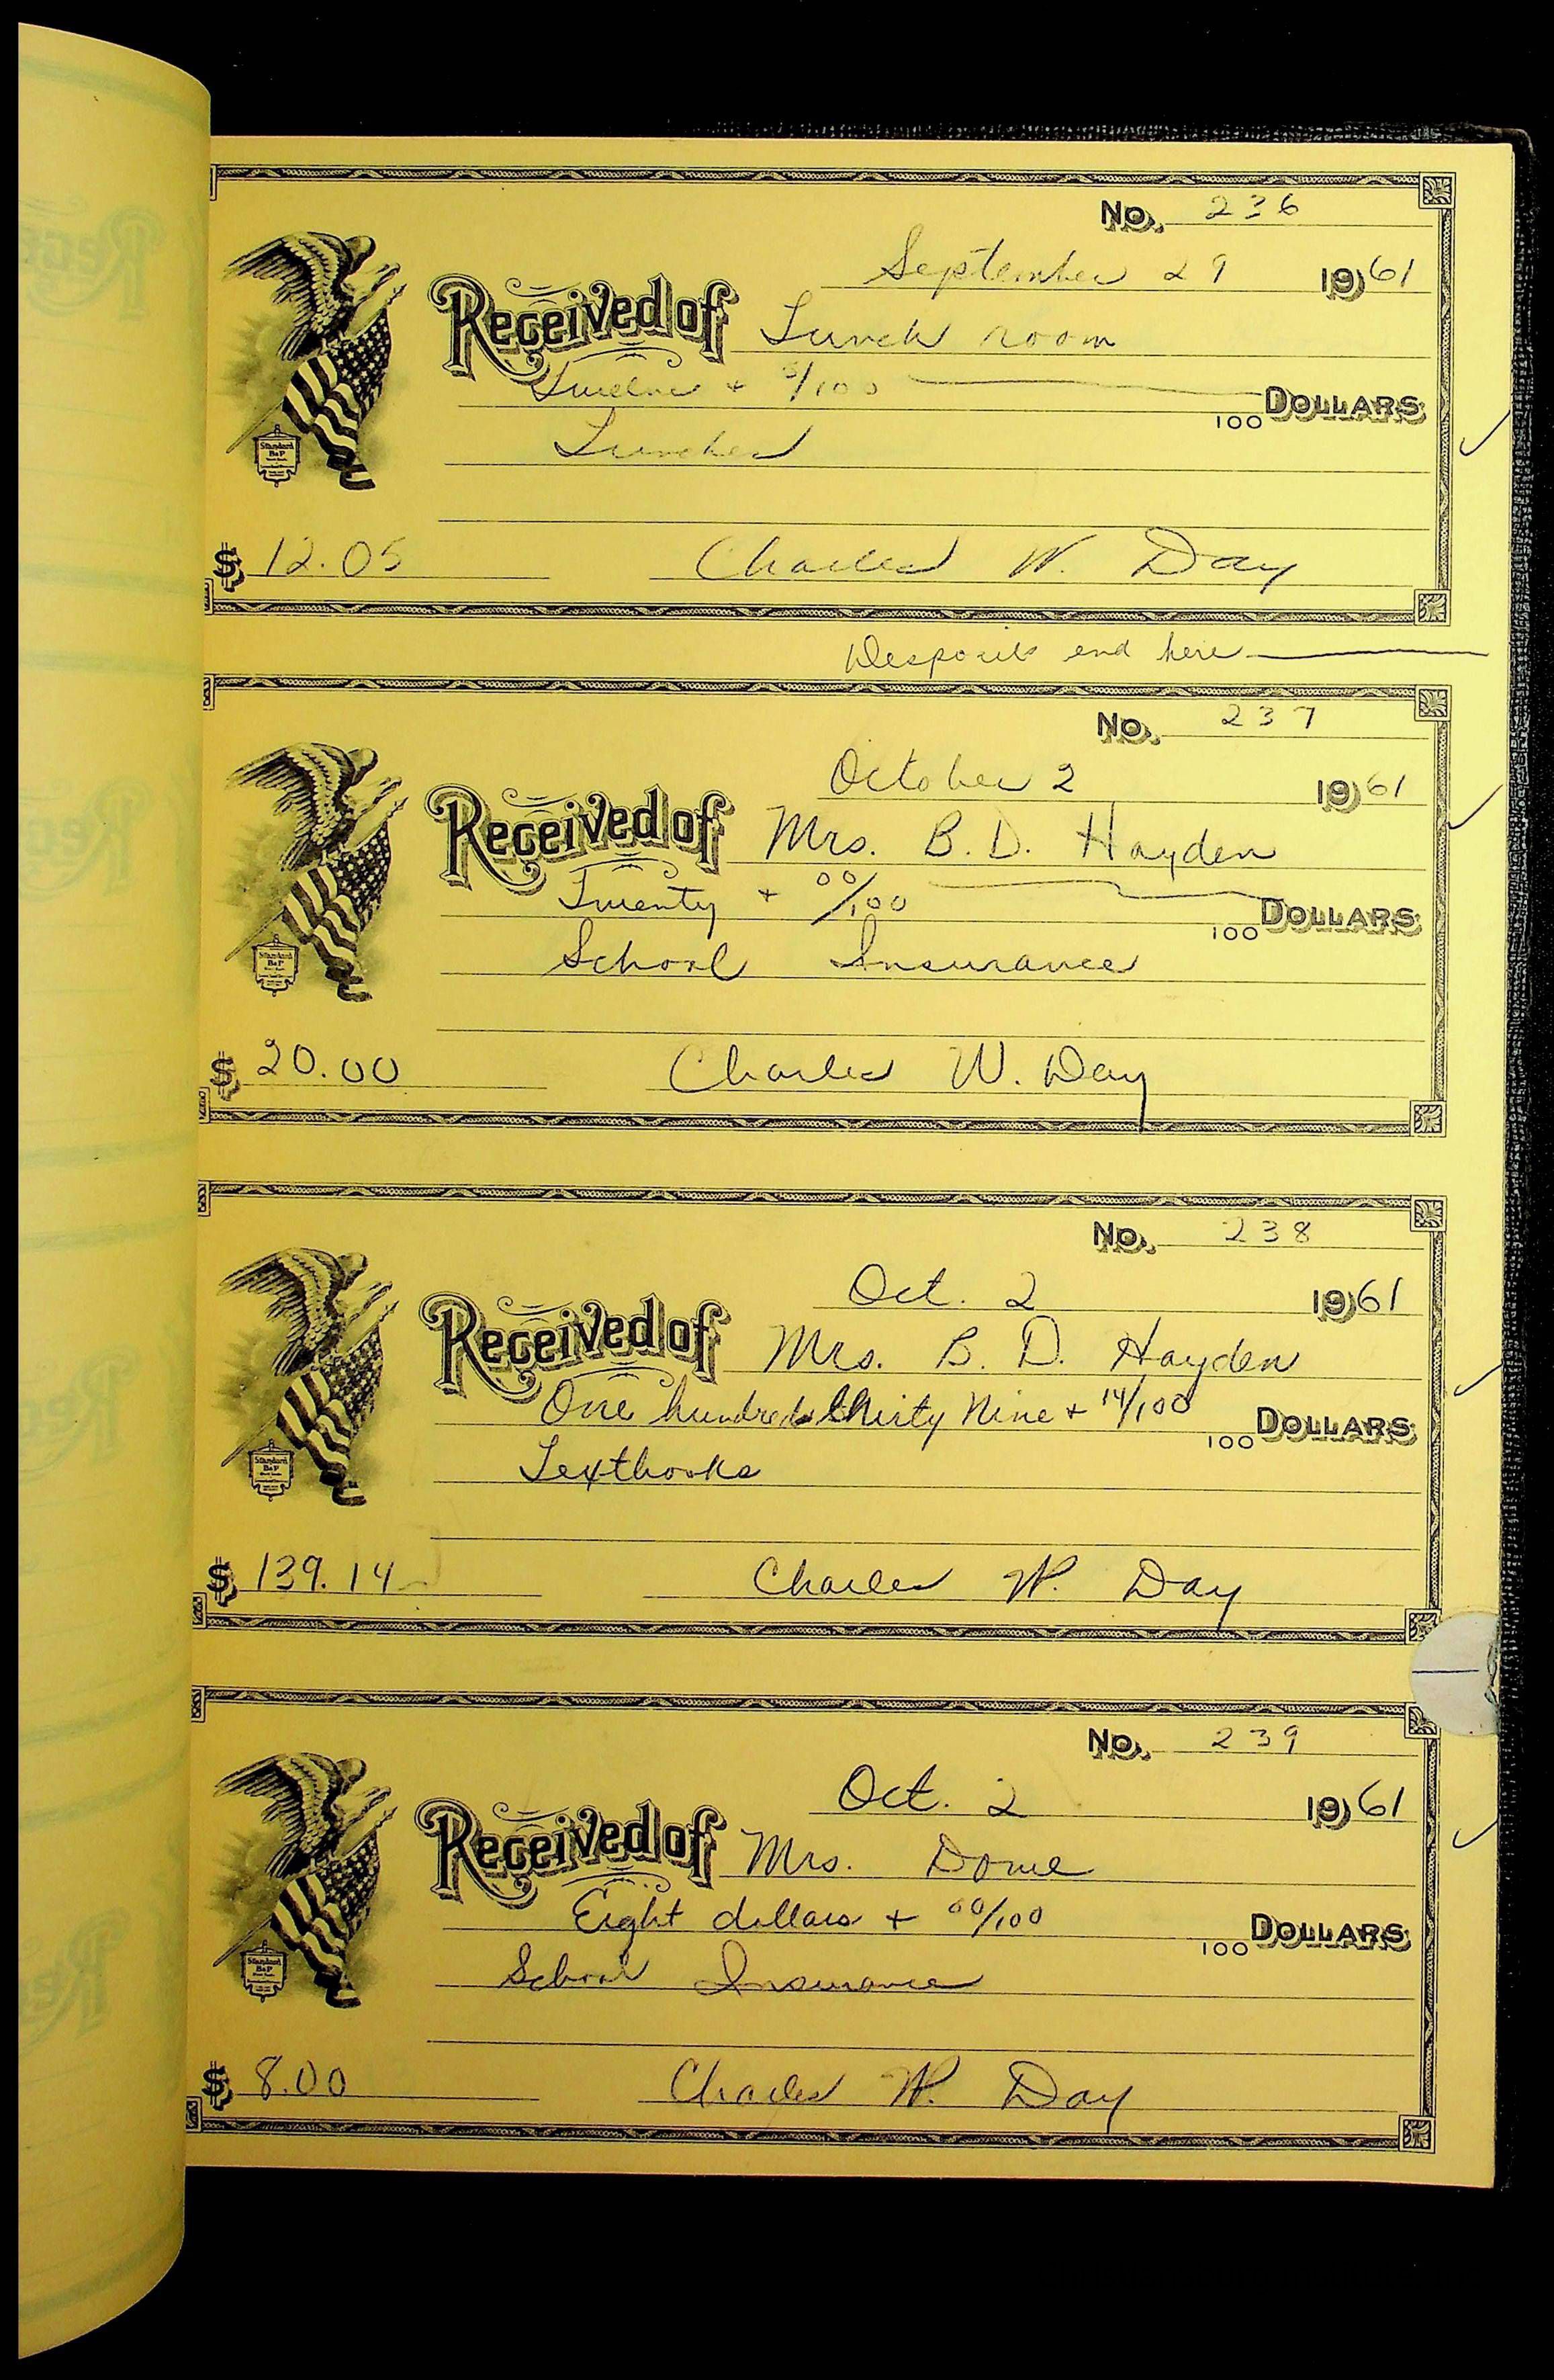 No. 236
September 29 1961
Received of Lunch room
Twelve + 5/100 100 DOLLARS
Lunches
$ 12.05 Charles W. Day
Desposits end here
No. 237
October 2 1961
Received of Mrs. B. D. Hayden
Twenty + 00/100 100 DOLLARS
School Insurance
$ 20.00 Charles W. Day
No. 238
Oct. 2 1961
Received of Mrs. B. D. Hayden
One hundred thirty Nine + 14/100 100 DOLLARS
Textbooks
$ 139.14 Charles W. Day
No. 239
Oct. 2 1961
Received of Mrs. Dowe
Eight dollars + 00/100 100 DOLLARS
School Insurance
$ 8.00 Charles W. Day